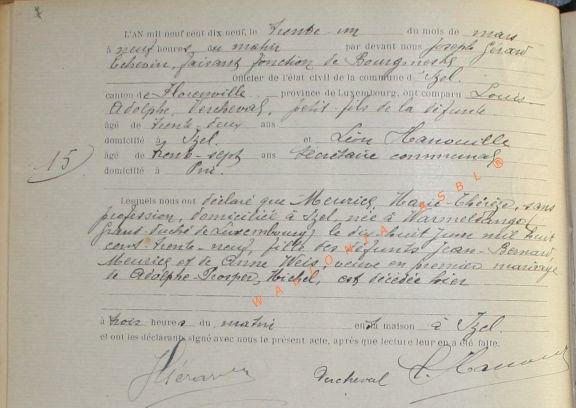 L'AN mil neuf cent dix neuf, le trente un du mois de mars
à neuf heures du matin par devant nous Joseph Gérard
Echevin, faisant fonction de Bourgmestre
officier de l'état civil de la commune d'Izel
canton de Florenville province de Luxembourg, ont comparu Louis-
Adolphe, Percheval, petit-fils de la défunte
âgé de trente-deux ans
domicilié à Izel et Léon Hanouille
âgé de trente-sept ans Secrétaire communal
domicilié à Pin
15
Lesquels nous ont déclaré que Meurice, Marie-Thérèse, sans
profession, domiciliée à Izel, née à
(Grand-duché de Luxembourg) le dix-huit Juin mil huit
cent trente-neuf, fille des défunts Jean-Bernard,
Meurice et de Anne Weis, veuve en premier mariage
de Adolphe-Prosper, Michel, est décédée hier
à trois heures du matin en sa maison à Izel
et ont les déclarants signé avec nous le présent acte, après que lecture leur en a été faite.
JGérard Percheval L. Hanouille
WALLONIA ASBL ®